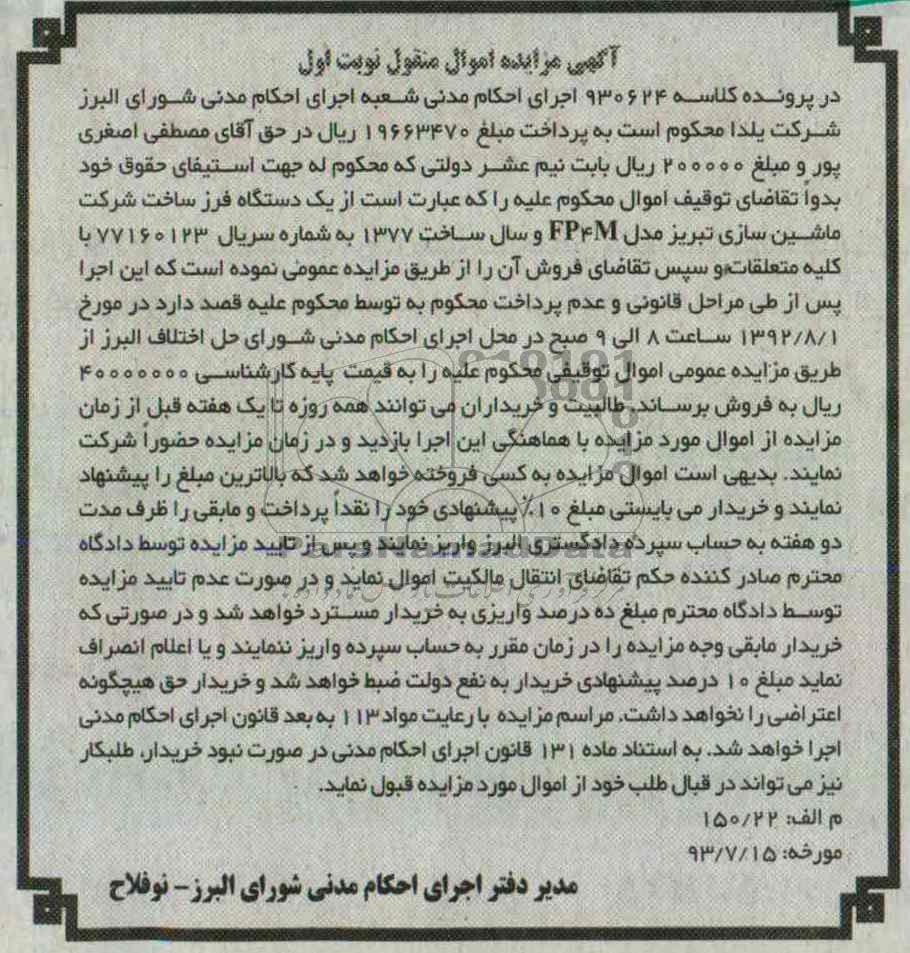 آگهی مزایده اموال منقول نوبت اول
در پرونده کلاسه ۹۳۰۶۲۴ اجرای احکام مدنی شعبه اجرای احکام مدنی شورای البرز
شرکت یلدا محکوم است به پرداخت مبلغ ۱۹۶۶۳۴۷۰ ریال در حق آقای مصطفی اصغری
پور و مبلغ ۲۰۰۰۰۰ ریال بابت نیم عشر دولتی که محکوم له جهت استیفای حقوق خود
بدواً تقاضای توقیف اموال محکوم علیه را که عبارت است از یک دستگاه فرز ساخت شرکت
ماشین سازی تبریز مدل FP۴M و سال ساخت ۱۳۷۷ به شماره سریال ۷۷۱۶۰۱۲۳ با
کلیه متعلقات و سپس تقاضای فروش آن را از طریق مزایده عمومی نموده است که این اجرا
پس از طی مراحل قانونی و عدم پرداخت محکوم به توسط محکوم علیه قصد دارد در مورخ
۱۳۹۲/۸/۱ ساعت ۸ الی ۹ صبح در محل اجرای احکام مدنی شورای حل اختلاف البرز از
طریق مزایده عمومی اموال توقیفی محکوم علیه را به قیمت پایه کارشناسی ۴۰۰۰۰۰۰۰
ریال به فروش برساند. طالبیت و خریداران می توانند همه روزه تا یک هفته قبل از زمان
مزایده از اموال مورد مزایده با هماهنگی این اجرا بازدید و در زمان مزایده حضوراً شرکت
نمایند. بدیهی است اموال مزایده به کسی فروخته خواهد شد که بالاترین مبلغ را پیشنهاد
نمایند و خریدار می بایستی مبلغ ۱۰٪ پیشنهادی خود را نقداً پرداخت و مابقی را ظرف مدت
دو هفته به حساب سپرده دادگستری البرز واریز نمایند و پس از تایید مزایده توسط دادگاه
محترم صادر کننده حکم تقاضای انتقال مالکیت اموال نماید و در صورت عدم تایید مزایده
توسط دادگاه محترم مبلغ ده درصد واریزی به خریدار مسترد خواهد شد و در صورتی که
خریدار مابقی وجه مزایده را در زمان مقرر به حساب سپرده واریز ننمایند و یا اعلام انصراف
نماید مبلغ ۱۰ درصد پیشنهادی خریدار به نفع دولت ضبط خواهد شد و خریدار حق هیچگونه
اعتراضی را نخواهد داشت. مراسم مزایده با رعایت مواد ۱۱۳ به بعد قانون اجرای احکام مدنی
اجرا خواهد شد. به استناد ماده ۱۳۱ قانون اجرای احکام مدنی در صورت نبود خریدار، طلبکار
نیز می تواند در قبال طلب خود از اموال مورد مزایده قبول نماید.
م الف: ۱۵۰/۲۲
مورخه: ۹۳/۷/۱۵
مدیر دفتر اجرای احکام مدنی شورای البرز- نوفلاح